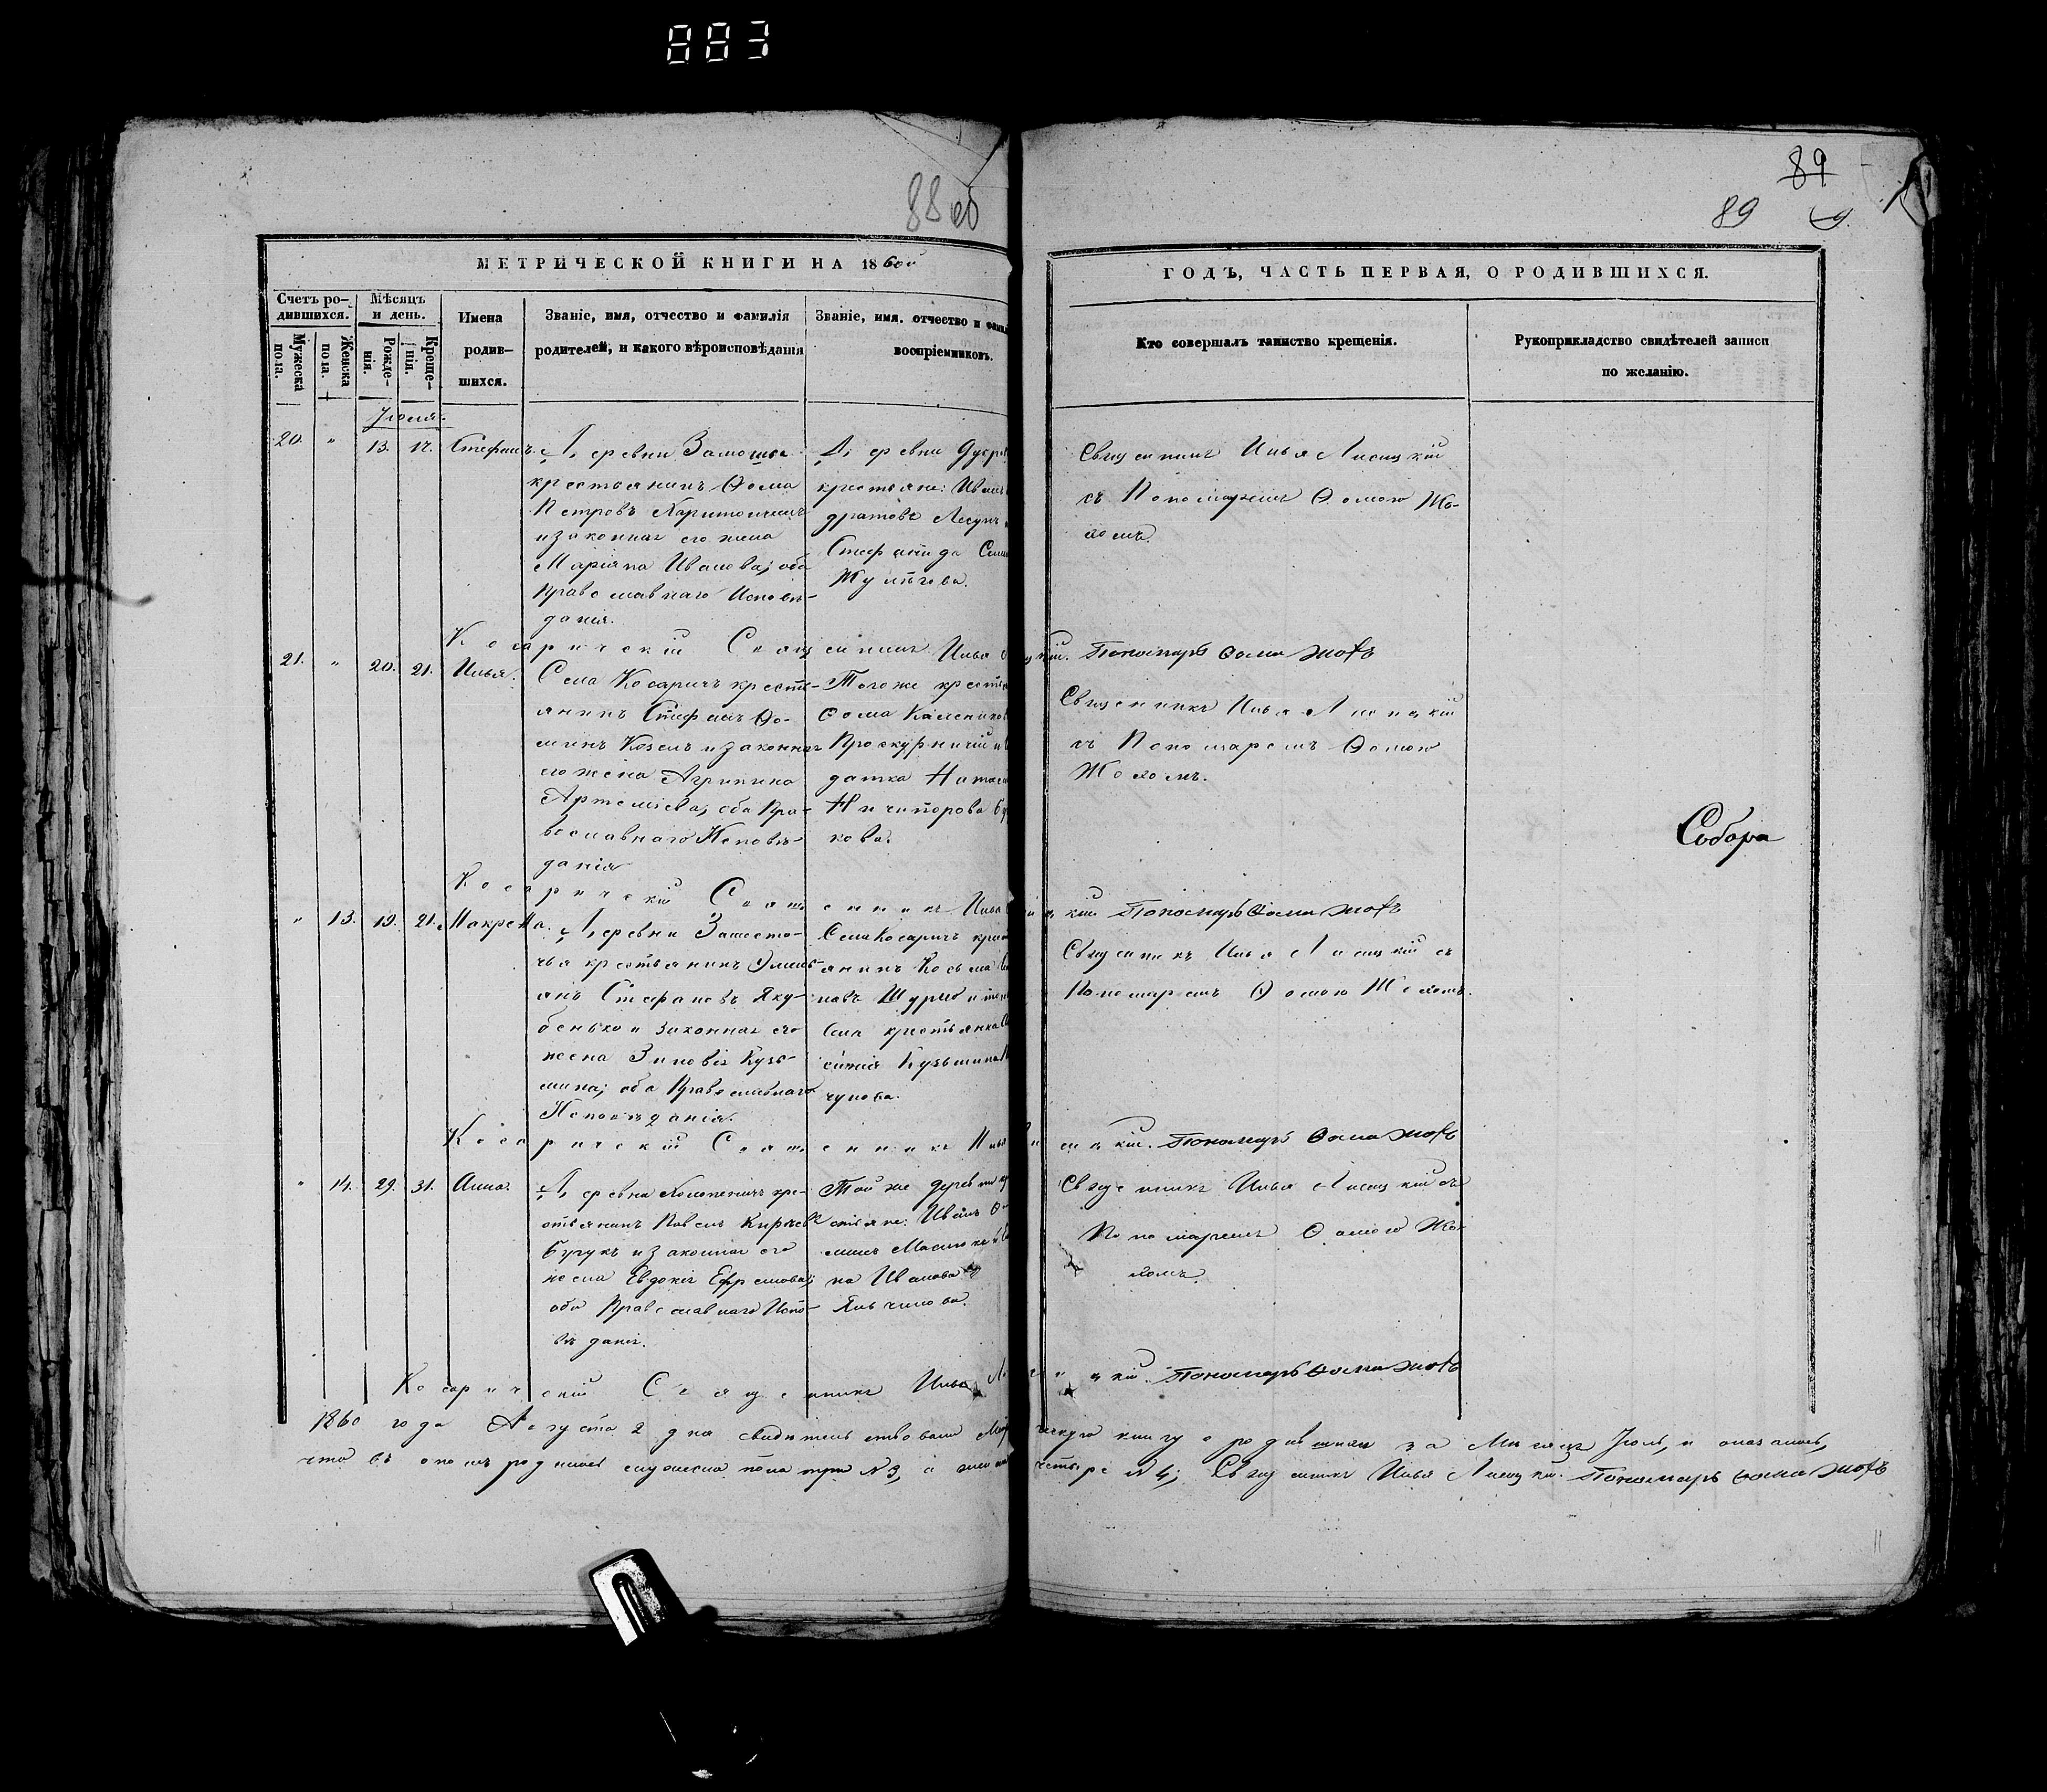 883
88 об
89
89
МЕТРИЧЕСКОЙ КНИГИ НА 1860й
ГОДЪ, ЧАСТЬ ПЕРВАЯ, О РОДИВШИХСЯ.
Счетъ ро-
дившихся.
Мужеска
пола.
Женска
пола.
Мѣсяцъ
и день.
Рожде-
нія.
Креще-
нія.
Имена
родив-
шихся.
Званіе, имя, отчество и фамилія
родителей, и какого вѣроисповѣданія
Званіе, имя, отчество и фамил
воспріемниковъ.
Кто совершалъ таинство крещенія.
Рукоприкладство свидѣтелей записи
по желанію.
Іюля.
20. " 13. 17. Стефанъ.
Деревни Замошья
крестьянинъ Ѳома
Петровъ Харитончикъ
и законная его жена
Маріяна Иванова; оба
Православнаго Исповѣ-
данія.
Деревни
крестьяне: Иванъ
дратовъ Лесунъ
Стефанида
Священникъ Илья Лисицкій
съ Пономаремъ Ѳомою Жо-
хомъ.
Косаричскій Священникъ Илья цкій. Пономарь Ѳома Жохъ
21. " 20. 21. Илья.
Села Косаричъ кресть-
янинъ Стефанъ Ѳо-
минъ Козелъ и законная
его жена Агрипина
Артеміева; оба Пра-
вославнаго Исповѣ-
данія
Тогоже крестья
Ѳома
Проскурничій и
датка
Ничипорова
кова.
Священникъ Илья Лисицкій
съ Пономаремъ Ѳомою
Жохомъ.
Собора
Косаричскій Священникъ Илья цкій Пономарь Ѳома Жохъ
" 13. 19. 21. Макрена.
Деревни Заместо-
чья крестьянинъ Эмиль-
янъ Стефановъ Яку-
бенько и законная его
жена Зиновія Кузь-
мина; оба Православнаго
Исповѣданія.
Села Косаричъ крест
янинъ Косьма
новъ и того
села крестьянка
Кузьмина
чунова.
Священникъ Илья Лисицкій съ
Пономаремъ Ѳомою Жохомъ.
Косаричскій Священникъ Илья Лисицкій. Пономарь Ѳома Жохъ
" 14. 29. 31. Анна.
Деревни Холопеничъ кре-
стьянинъ Павелъ
и законная его
жена Евдокія Ефремова;
оба Православнаго Испо-
вѣданія.
Той же деревни кр
стьяне: Иванъ Ѳо
минъ
на Иванова
Священникъ Илья Лисицкій съ
Пономаремъ Ѳомою Жо-
хомъ.
Косаричскій Священникъ Илья Лисицкій. Пономарь Ѳома Жохъ
1860 года Августа 2 дня свидѣтельствовали Метрическую книгу о родившихся за Мѣсяцъ Іюль, и оказалось,
что въ ономъ родилось мужеска пола три №3, а женска четыре №4; Священникъ Илья Лисицкій. Пономарь Ѳома Жохъ